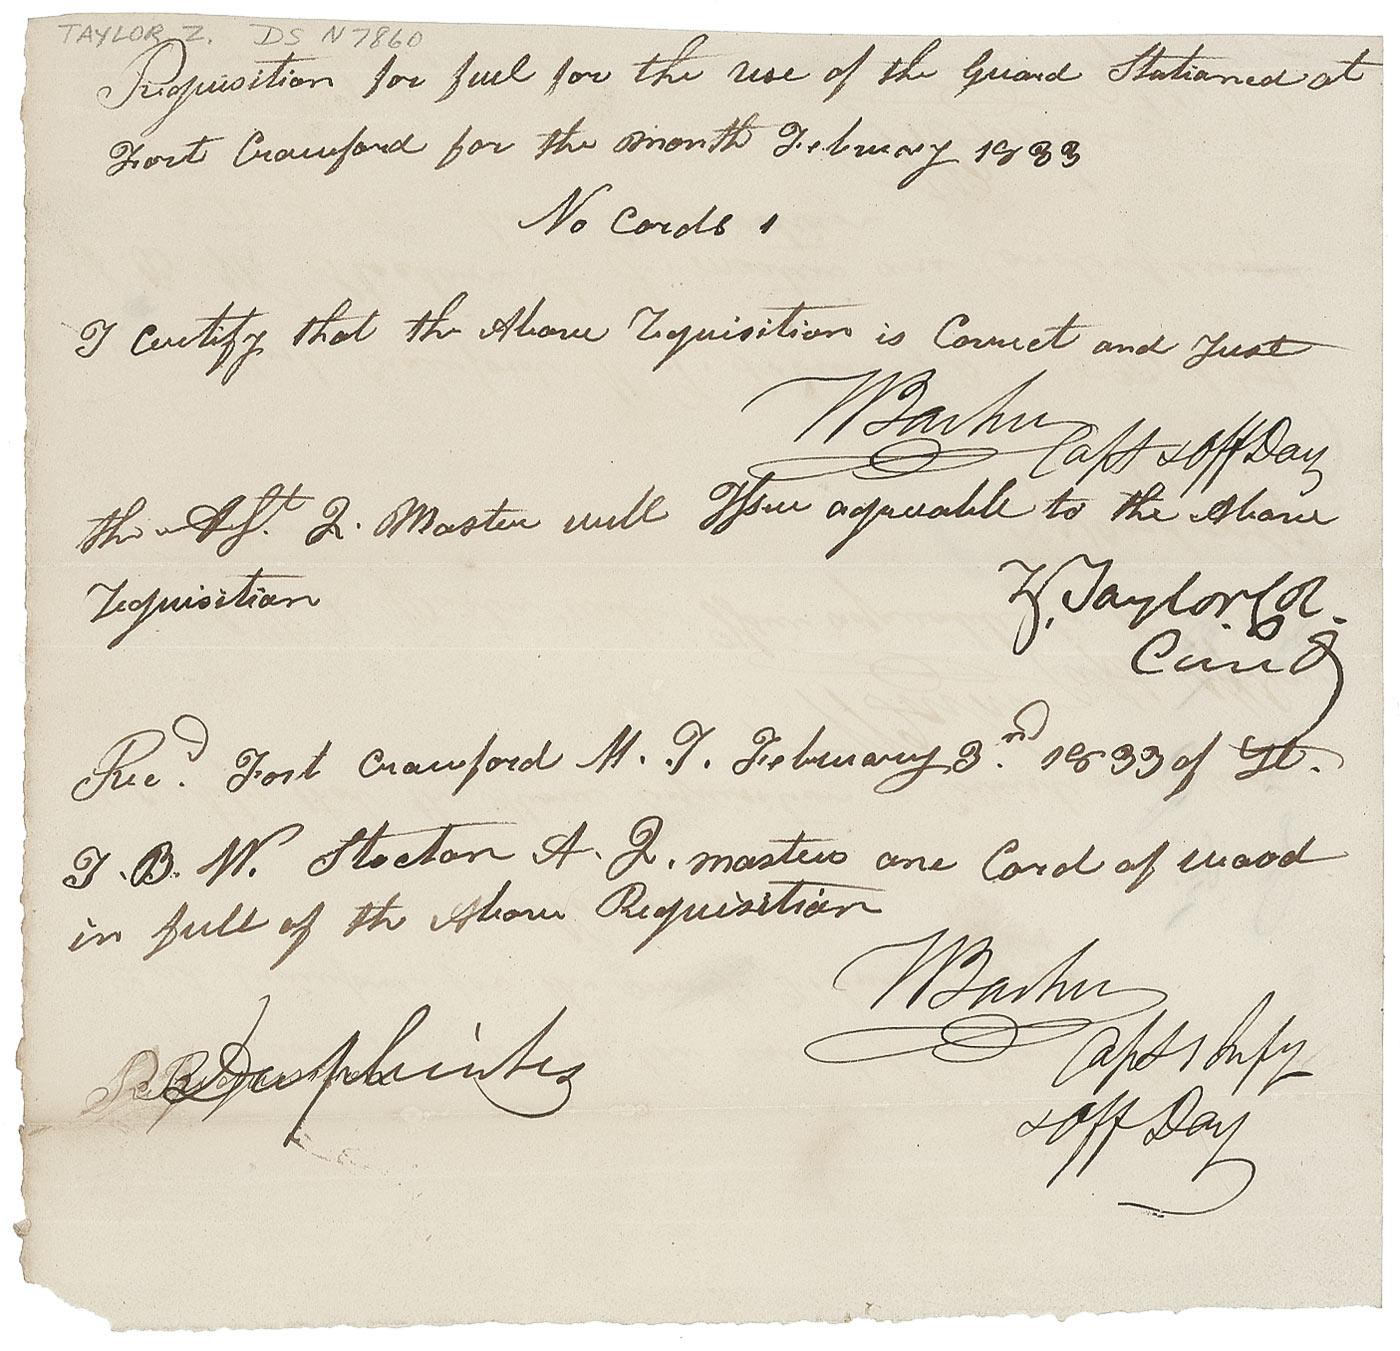 TAYLOR Z. DS N7860
Requisition for fuel for the use of the Guard Stationed at
Fort Crawford for the month February 1833
No Cords 1
I certify that the Above Requisition is Correct and Just
Barker Capt & Off Day
the Ast. Q. Master will Issue agreeable to the Above
Requisition
Z. Taylor Col.
Comd
Recd. Fort Crawford M. T. February 3rd. 1833 of Lt.
T. B. W. Stocton A. Q. masters one Cord of wood
in full of the Above Requisition
Barker
Capt 1 Infy
& Off Day